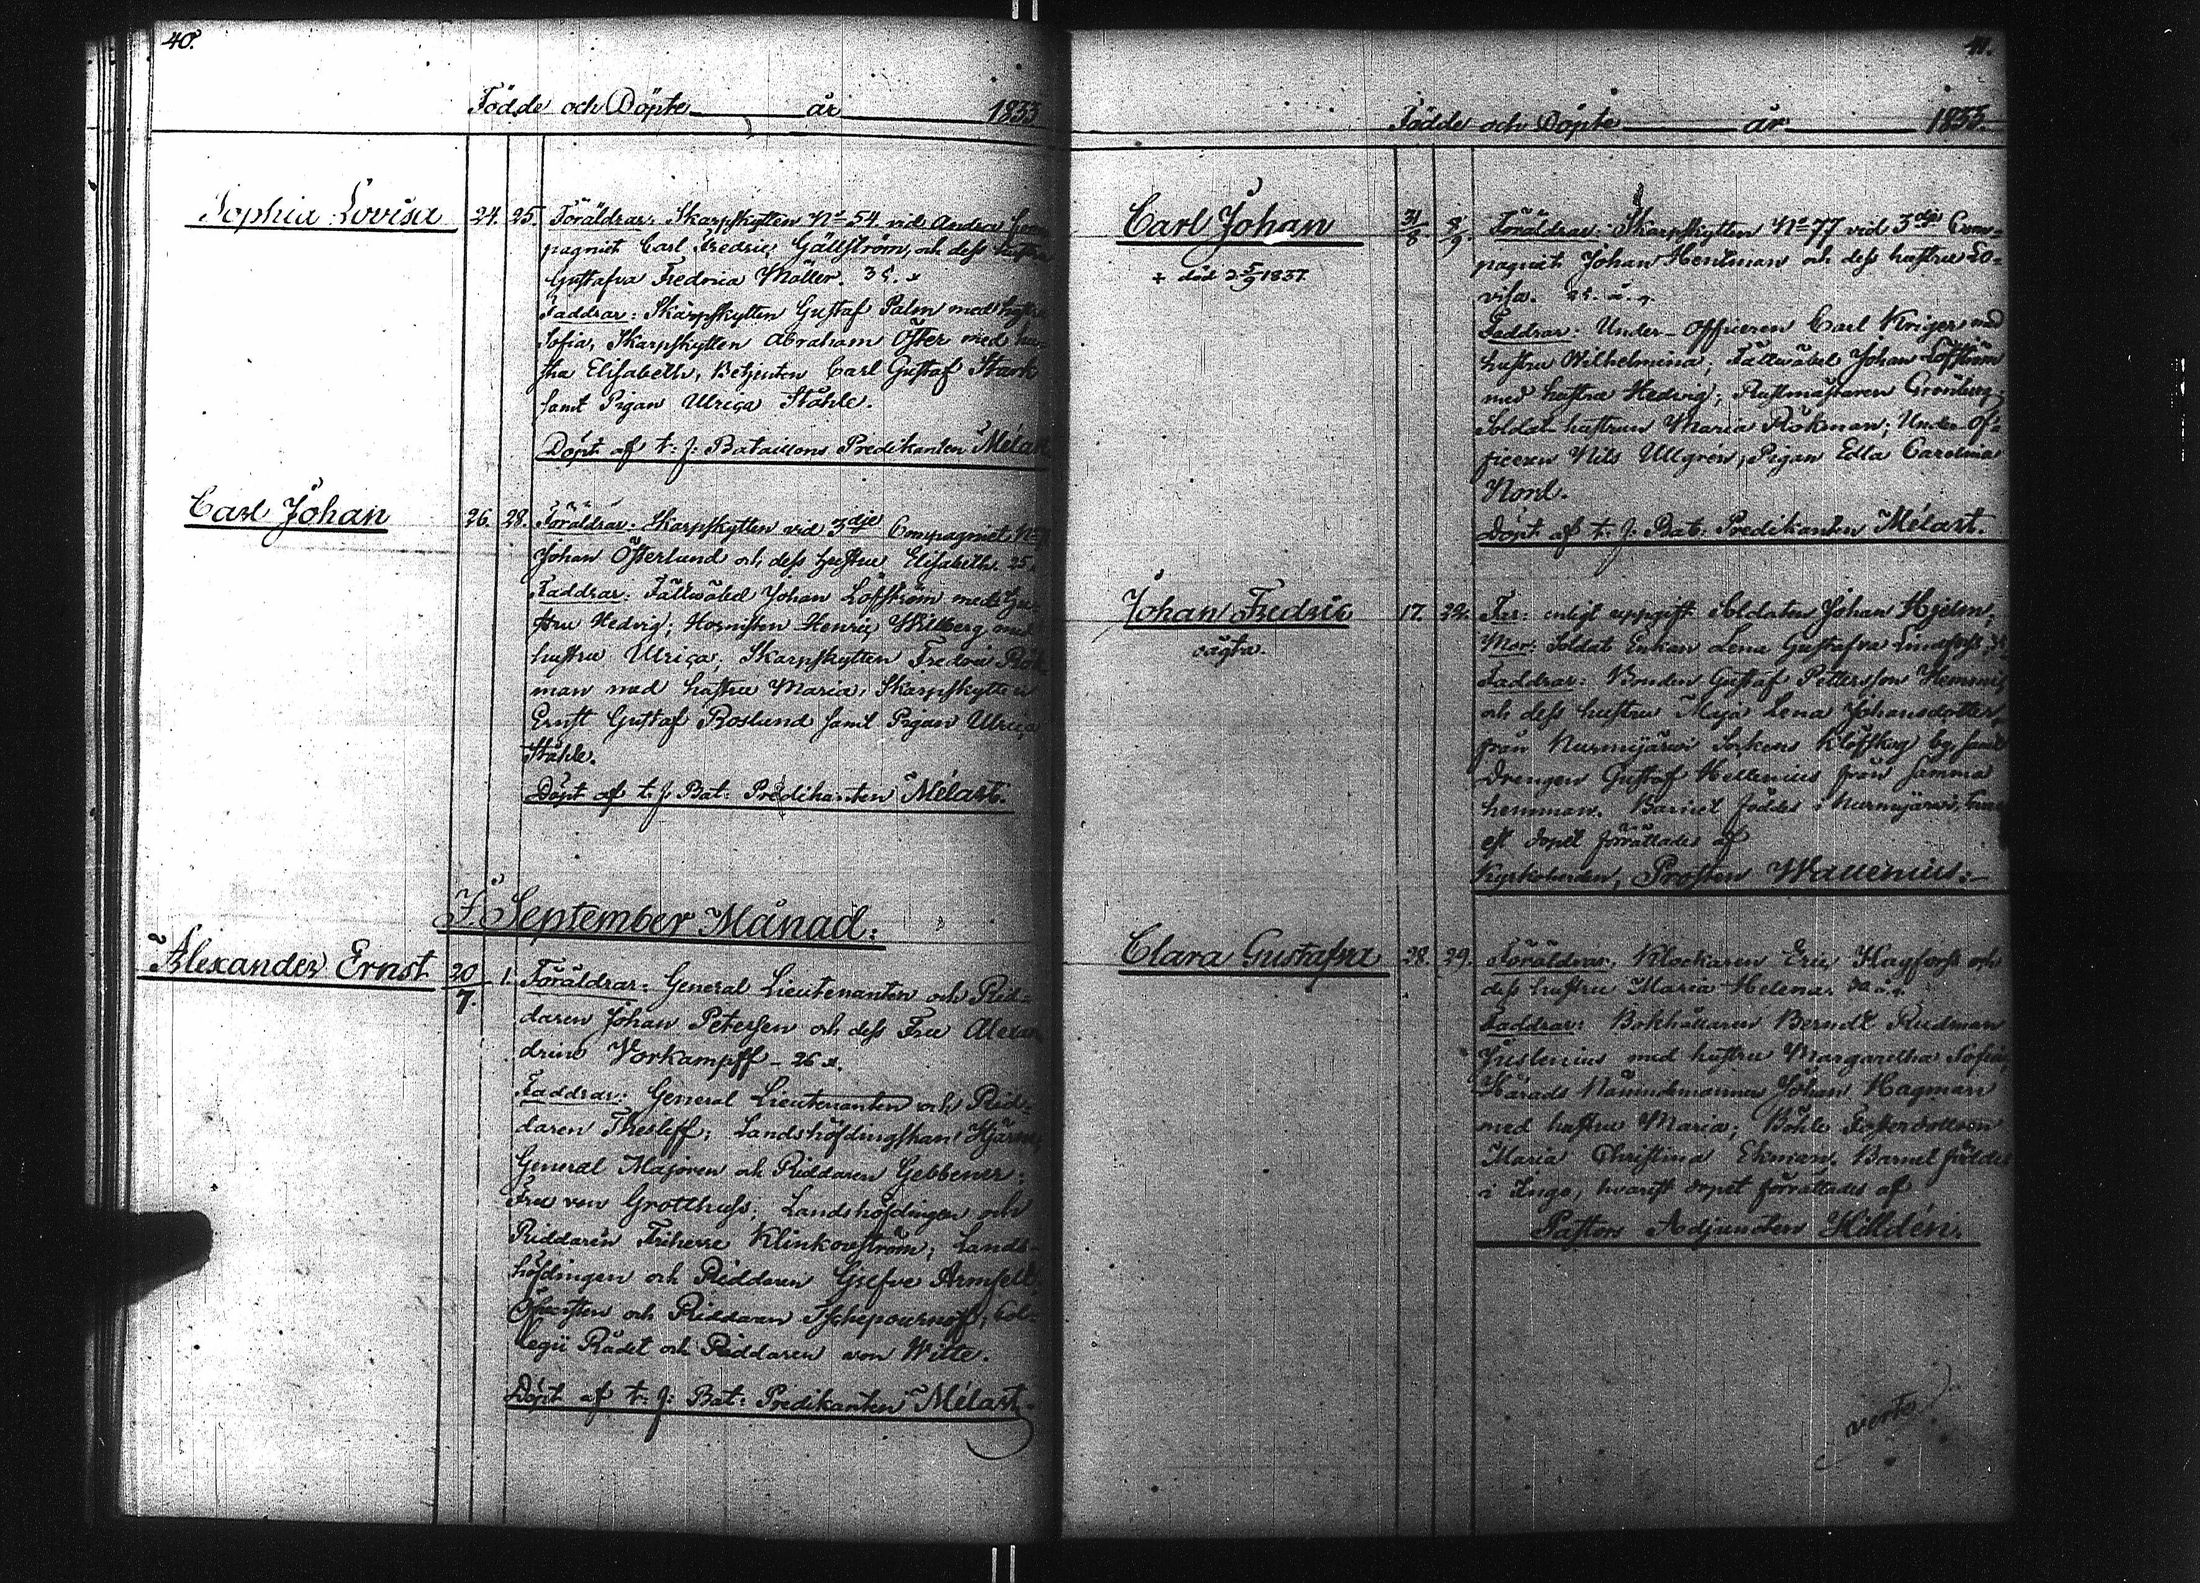 40.
Födde och Döpte år 1833
Sophia Lovisa 24. 25. Föräldrar: Skarpskytten No 54. vid Andra Com-
pagniet Carl Fredric Gällström, och dess hustru
Gustafva Fredrica Möller. 35.
Faddrar: Skarpskytten Gustaf Palm med hustru
Sofia, Skarpskytten Abraham Öster med hu-
stru Elisabeth, Betjenten Carl Gustaf Stark
samt Pigan Ulrica Ståhle.
Döpt af t. j. Bataillons Predikanten Mélart
Carl Johan 26. 28. Föräldrar: Skarpskytten vid 3dje Compagniet No
Johan Österlund och dess hustru Elisabeth. 25.
Faddrar: Fältwäbel Johan Löfström med hu-
stru Hedvig; Hornisten Henric Willberg med
hustru Ulrica; Skarpskytten Fredric Rök-
man med hustru Maria, Skarpskytten
Ernst Gustaf Roslund samt Pigan Ulrica
Ståhle.
Döpt af t. j. Bat. Predikanten Mélart.
I September Månad.
Alexander Ernst 20/7. 1. Föräldrar: General Lieutenanten och Rid-
daren Johan Petersen och dess Fru Alexan-
drine Vorkampff - 26
Faddrar: General Lieutenanten och Rid-
daren Thesleff; Landshöfdingskan Hjärne,
General Majoren och Riddaren Gebbener;
Fru von Grotthuss; Landshöfdingen och
Riddaren Friherre Klinkowström; Lands-
höfdingen och Riddaren Grefve Armfelt
Öfversten och Riddaren Tschepournoff; Col-
legii Rådet och Riddaren von Witte.
Döpt af t. j. Bat. Predikanten Mélart.
41.
Födde och Döpte år 1833.
Carl Johan 31/8 8/9. Föräldrar: Skarpskytten No 77 vid 3dje Com-
+ död 2 5/9 1837.
pagniet Johan Hentman och dess hustru Lo-
visa. 25. å. g.
Faddrar: Under-Officeren Carl Kriger med
hustru Wilhelmina; Fältwäbel Johan Löfström
med hustru Hedvig; Rustmästaren Grönberg;
Soldats hustrun Maria Rökman; Under-Of-
ficeren Nils Ullgrén; Pigan Edla Carolina
Nord.
Döpt af t. j. Bat. Predikanten Mélart.
Johan Fredric 17. 22. Far: enligt uppgift Soldaten Johan Hjelm,
oägta.
Mor: Soldats Enkan Lena Gustafva Lindfors,
Faddrar: Bonden Gustaf Pettersson
och dess hustru Maja Lena Johansdotter
från Nurmijärvi Sockens Klöfskog by, samt
Drengen Gustaf Hellenius från samma
hemman. Barnet föddes i Nurmijärvi, hvar-
est dopet förrättades af
Kyrkoherden, Prosten Wallenius.
Clara Gustafva 28. 29. Föräldrar, Klockaren Eric Hagfors och
dess hustru Maria Helena.
Faddrar: Bokhållaren Berndt Rudman
Juslenius med hustru Margaretha Sofia,
Härads Nämndemannen Johan Hagman
med hustru Maria; Böhle Fosterdottern
Maria Christina Ekman. Barnet föddes
i Ingo, hvarest dopet förrättades af
Pastors Adjuncten Hilldén.
verte